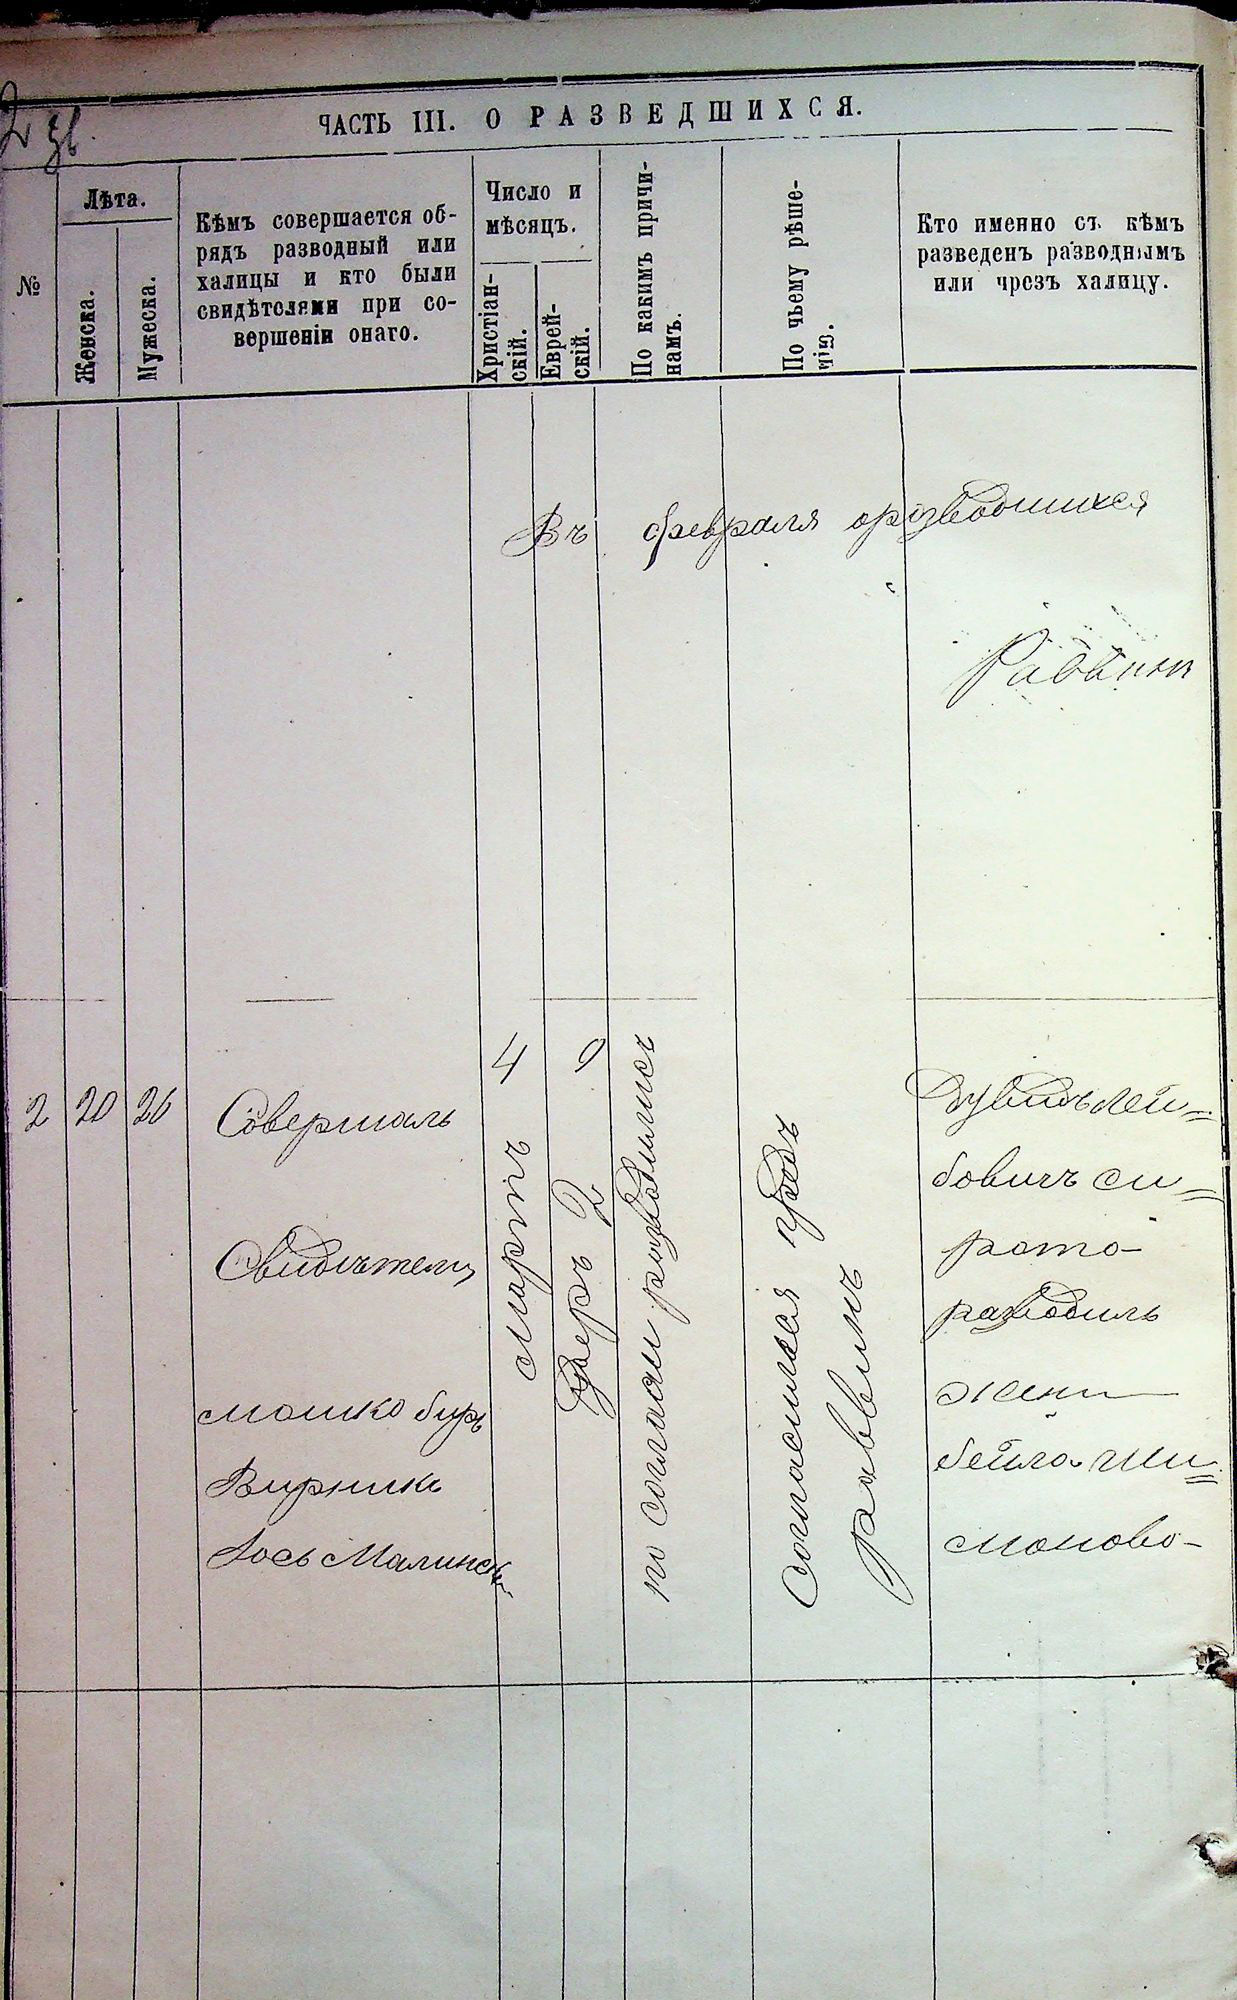 ЧАСТЬ III. О РАЗВЕДШИХСЯ.
№
Лѣта.
Женска.
Мужеска.
Кѣмъ совершается об-
рядъ разводный или
халицы и кто были
свидѣтелями при со-
вершеніи онаго.
Число и
мѣсяцъ.
Христіан-
скій.
Еврей-
скій.
По какимъ причи-
намъ.
По чьему рѣше-
нію.
Кто именно съ кѣмъ
разведенъ разводнымъ
или чрезъ халицу.
Въ февраля
Раввинъ
2
20
26
Совершалъ
Свидѣтели
мошко бирь
Вирникъ
Іось Малинск
4
Мартъ
9
2
по согласи разводились
Согласился
раввинъ
Дувидъ Лей=
бовичъ си=
рото-
разводилъ
жени
бейла ши=
моново-